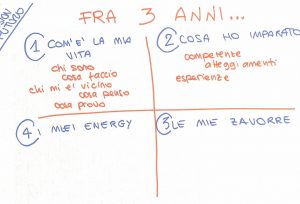 FRA 3 ANNI...
1 COM'È LA MIA
VITA
chi sono
cosa faccio
chi mi è vicino
cosa penso
cosa provo
2 COSA HO IMPARATO
competenze
atteggiamenti
esperienze
4 I MIEI ENERGY
3 LE MIE ZAVORRE